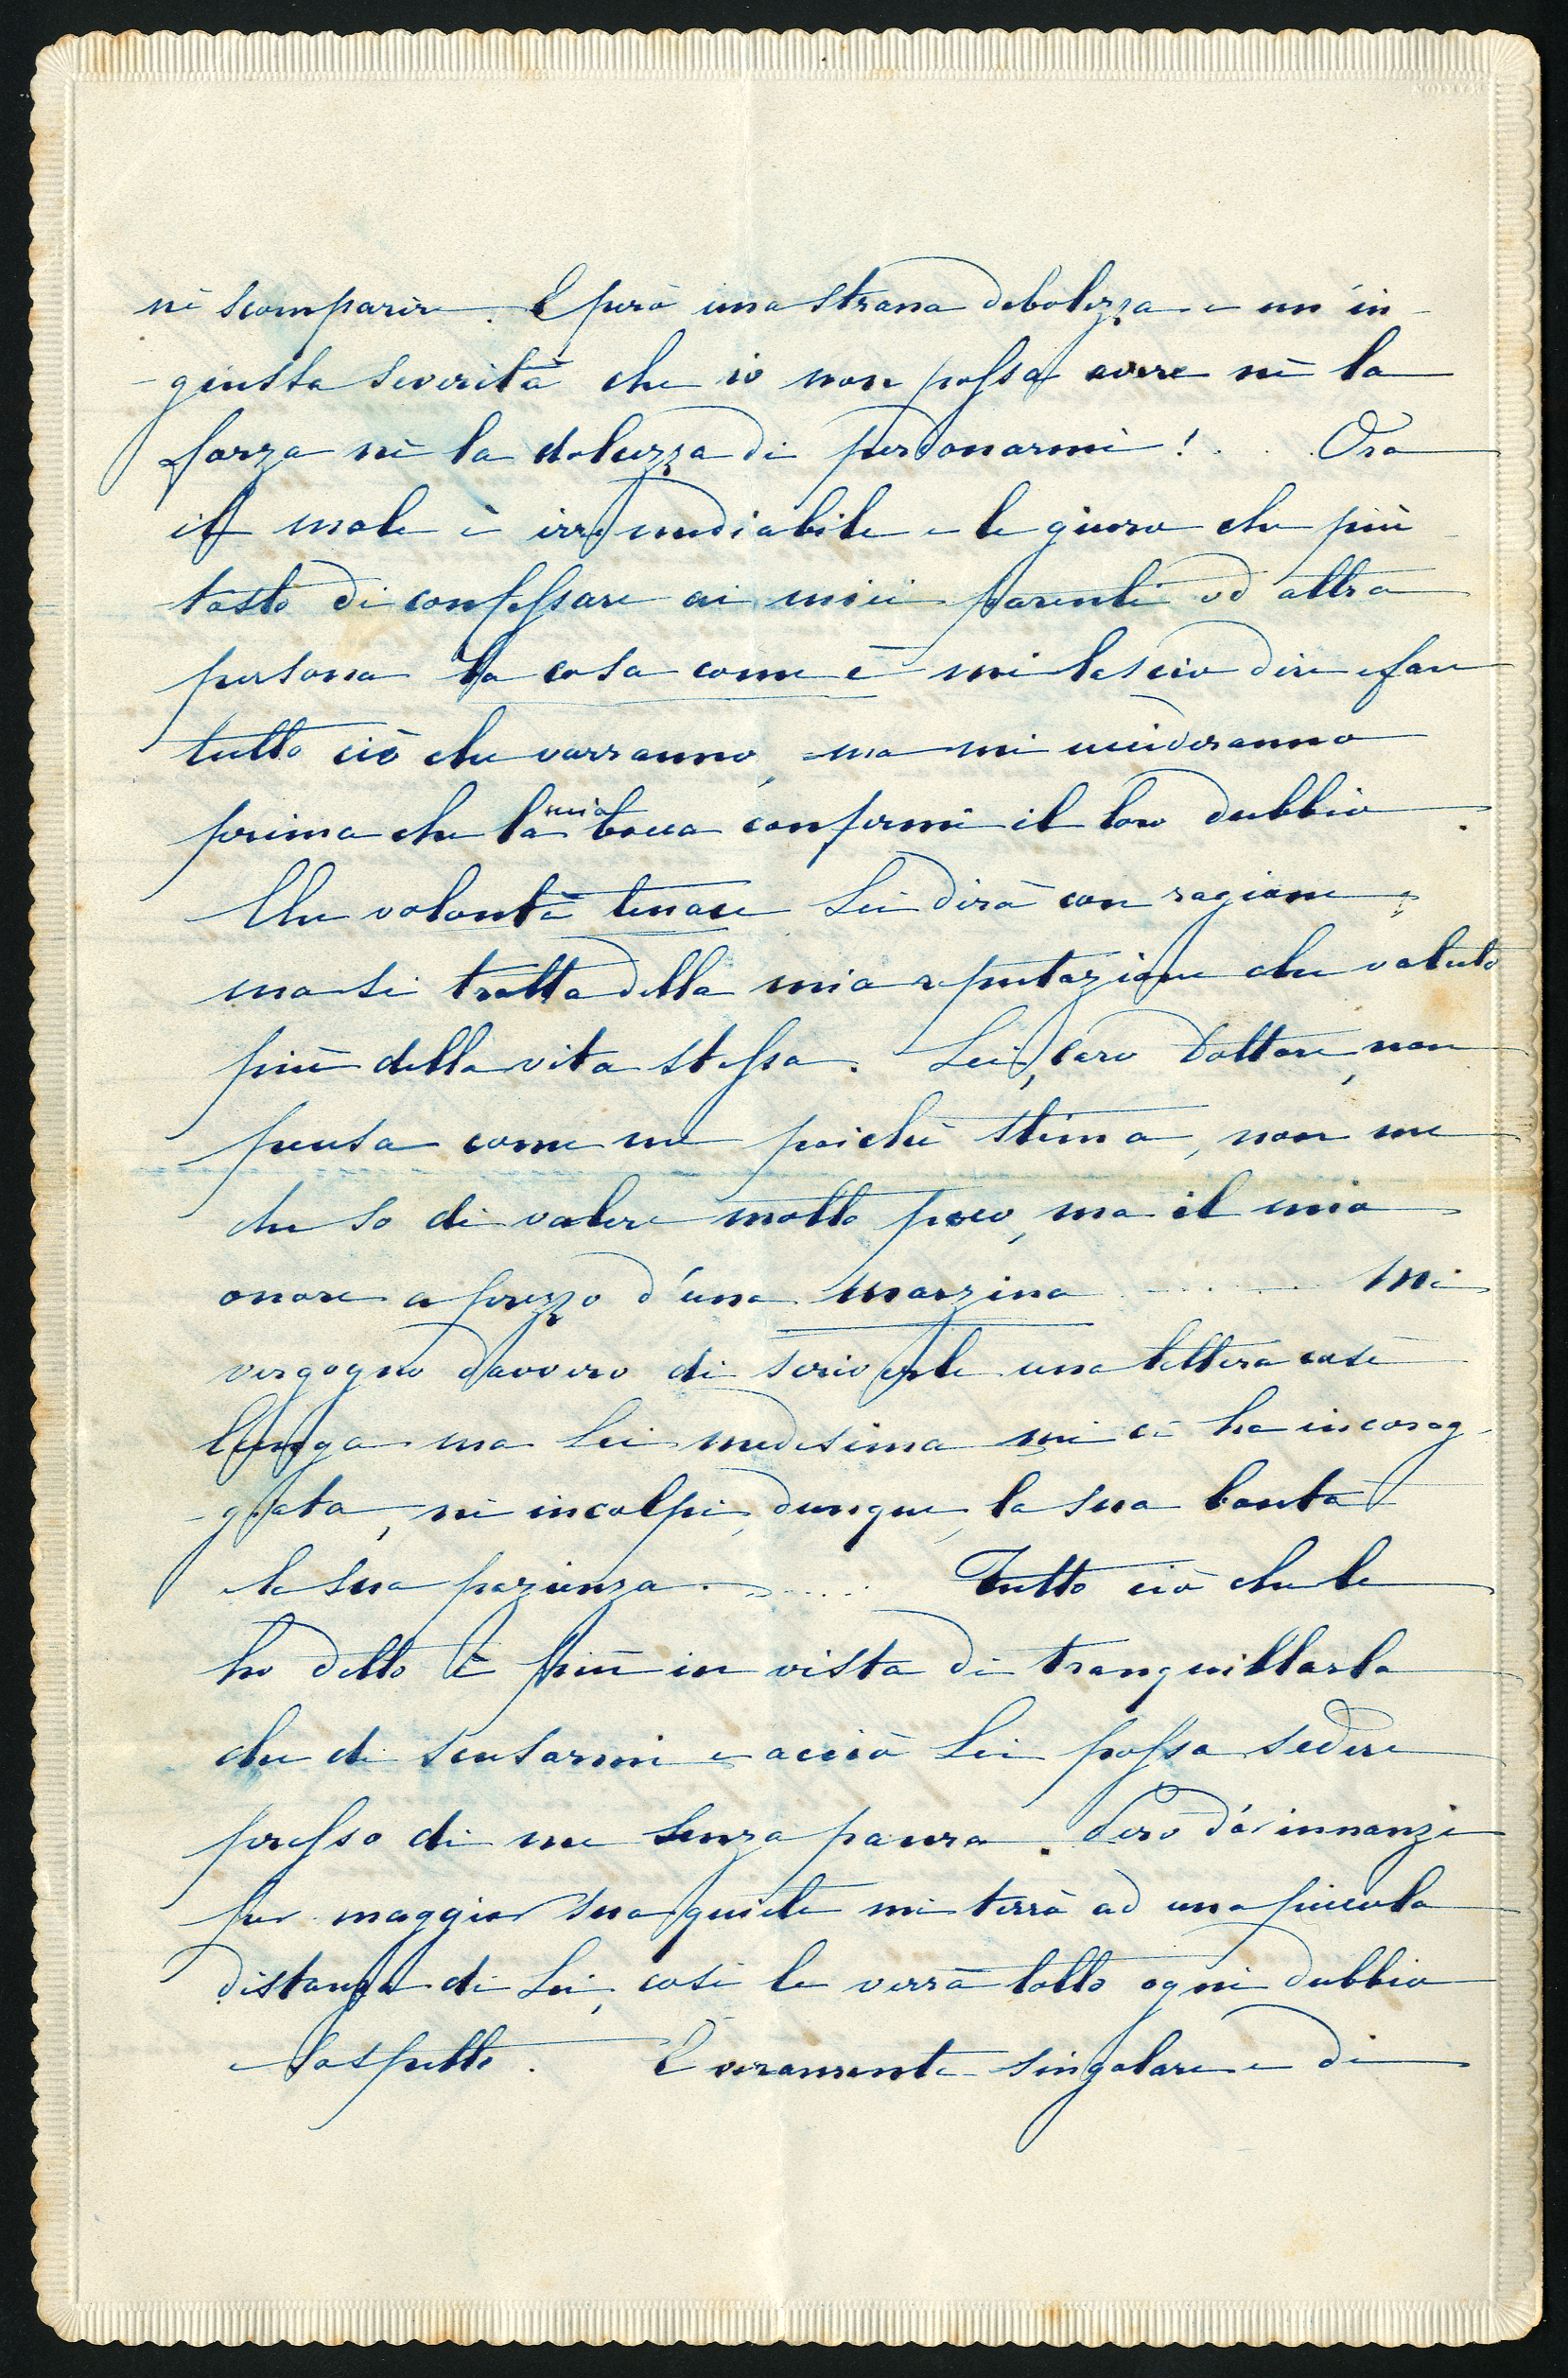 nè scomparire. È però una strana debolezza e un'in-
-giusta severità che io non possa avere nè la
forza nè la dolcezza di perdonarmi!... Ora
il male è irremediabile e le giuro che più
tosto di confessare ai miei parenti od altra
persona la cosa come è mi lascio dire e fare
tutto ciò che vorranno, ma mi uccideranno
prima che la mia bocca confermi il loro dubbio.
Che volontà tenace Lei dirà con ragione;
ma si tratta della mia reputazione che valuto
più della vita stessa. Lei, caro Dottore, non
pensa come me poichè stima, non me
che so di valere molto poco, ma il mio
onore a prezzo d'una marzina ...... Mi
vergogno davvero di scriverle una lettera così
lunga ma Lei medesima mi ci ha incorag-
-giata, ne incolpi, dunque, la sua bontà
e la sua pazienza...... Tutto ciò che le
ho detto è più in vista di tranquillarla
che di scusarmi e acciò Lei possa sedere
presso di me senza paura. Però d'or innanzi
per maggior sua quiete mi terrò ad una piccola
distanza di Lei, così le verrà tolto ogni dubbio
e sospetto. È veramente singolare e di